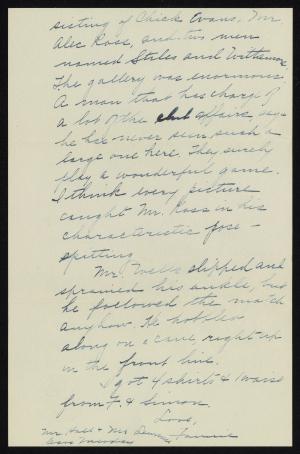 sisting of Chick Evans, Mr.
Alec Ross, and two men
named Stiles and
The gallery was enormous.
A man that has charge of
a lot of the club affairs, says
he has never seen such a
large one here. They surely
play a wonderful game.
I think every picture
caught Mr. Ross in his
characteristic pose -
spitting.
Mr. Wells slipped and
sprained his ankle, but
he followed the match
anyhow. He hobbled
along on a cane, right up
in the front line.
I got 4 shirts & 1 waist
from F. & Simon.
Love,
Fannie
Mr. Hall & Mr.